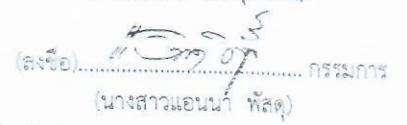 (ลงชื่อ)........................................ กรรมการ
(นางสาวแอนนา พัสดุ)